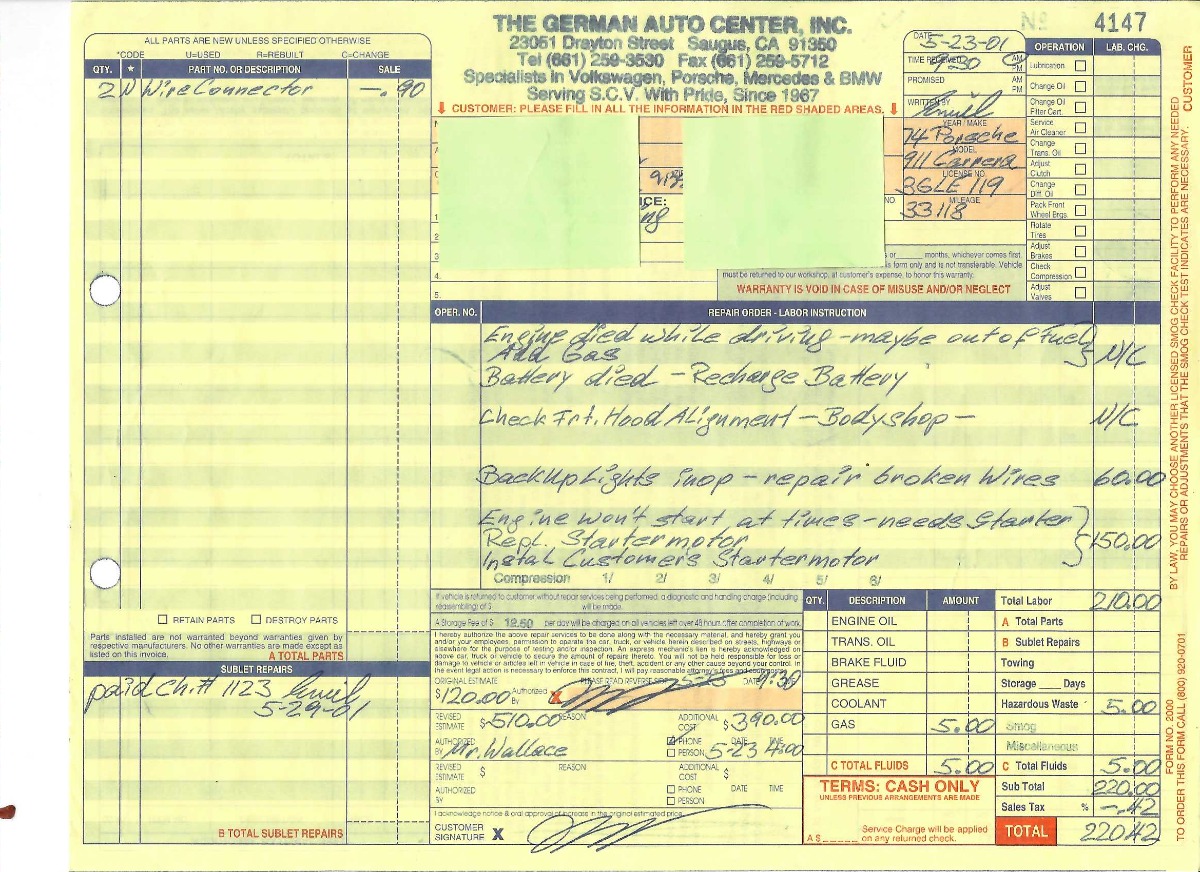 THE GERMAN AUTO CENTER, INC.
23051 Drayton Street Saugus, CA 91350
Tel (661) 259-3530 Fax (661) 259-5712
Specialists in Volkswagen, Porsche, Mercedes & BMW
Serving S.C.V. With Pride, Since 1967
CUSTOMER: PLEASE FILL IN ALL THE INFORMATION IN THE RED SHADED AREAS.
Nº 4147
ALL PARTS ARE NEW UNLESS SPECIFIED OTHERWISE
*CODE U=USED R=REBUILT C=CHANGE
QTY. * PART NO. OR DESCRIPTION SALE
2 N Wire Connector —.90
DATE 5-23-01
TIME RECEIVED 9:30 AM PM
PROMISED AM PM
WRITTEN BY Emil
YEAR / MAKE
74 Porsche
MODEL
911 Carrera
LICENSE NO.
3GLE119
NO. MILEAGE
33118
OPERATION LAB. CHG.
Lubrication
Change Oil
Change Oil Filter Cart.
Service Air Cleaner
Change Trans. Oil
Adjust Clutch
Change Diff. Oil
Pack Front Wheel Brgs.
Rotate Tires
Adjust Brakes
Check Compression
Adjust Valves
CUSTOMER
1.
2.
3.
4.
5.
ICE:
or ______ months, whichever comes first.
is form only and is not transferable. Vehicle
must be returned to our workshop, at customer's expense, to honor this warranty.
WARRANTY IS VOID IN CASE OF MISUSE AND/OR NEGLECT
OPER. NO. REPAIR ORDER - LABOR INSTRUCTION
Engine died while driving - maybe out of Fuel
Add Gas N/C
Battery died - Recharge Battery
Check Frt. Hood Alignment - Bodyshop - N/C
Back Up Lights inop - repair broken Wires 60.00
Engine won't start at times - needs Starter
Repl. Startermotor 150.00
Instal Customer's Startermotor
Compression 1/ 2/ 3/ 4/ 5/ 6/
RETAIN PARTS DESTROY PARTS
Parts installed are not warranted beyond warranties given by
respective manufacturers. No other warranties are made except as
listed on this invoice.
A TOTAL PARTS
SUBLET REPAIRS
paid ch.# 1123 Emil
5-29-01
B TOTAL SUBLET REPAIRS
If vehicle is returned to customer without repair services being performed, a diagnostic and handling charge (including
reassembling) of $ will be made.
A Storage Fee of $ 12.50 per day will be charged on all vehicles left over 48 hours after completion of work.
I hereby authorize the above repair services to be done along with the necessary material, and hereby grant you
and/or your employees, permission to operate the car, truck, or vehicle herein described on streets, highways or
elsewhere for the purpose of testing and/or inspection. An express mechanic's lien is hereby acknowledged on
above car, truck or vehicle to secure the amount of repairs thereto. You will not be held responsible for loss or
damage to vehicle or articles left in vehicle in case of fire, theft, accident or any other cause beyond your control. In
the event legal action is necessary to enforce this contract, I will pay reasonable attorney's fees and
ORIGINAL ESTIMATE PLEASE READ REVERSE SIDE DATE
$120.00 Authorized By X 5-23 9:30
REVISED ESTIMATE $510.00 REASON ADDITIONAL COST $390.00
AUTHORIZED BY Mr. Wallace PHONE PERSON DATE TIME 5-23 4:00
REVISED ESTIMATE $ REASON ADDITIONAL COST $
AUTHORIZED BY PHONE PERSON DATE TIME
I acknowledge notice & oral approval of increase in the original estimated price.
CUSTOMER SIGNATURE X
QTY. DESCRIPTION AMOUNT
ENGINE OIL
TRANS. OIL
BRAKE FLUID
GREASE
COOLANT
GAS 5.00
C TOTAL FLUIDS 5.00
TERMS: CASH ONLY
UNLESS PREVIOUS ARRANGEMENTS ARE MADE
A $______ Service Charge will be applied
on any returned check.
Total Labor 210.00
A Total Parts
B Sublet Repairs
Towing
Storage ____ Days
Hazardous Waste 5.00
Smog
Miscellaneous
C Total Fluids 5.00
Sub Total 220.00
Sales Tax % —.42
TOTAL 220.42
BY LAW, YOU MAY CHOOSE ANOTHER LICENSED SMOG CHECK FACILITY TO PERFORM ANY NEEDED
REPAIRS OR ADJUSTMENTS THAT THE SMOG CHECK TEST INDICATES ARE NECESSARY.
FORM NO. 2000
TO ORDER THIS FORM CALL (800) 920-0701